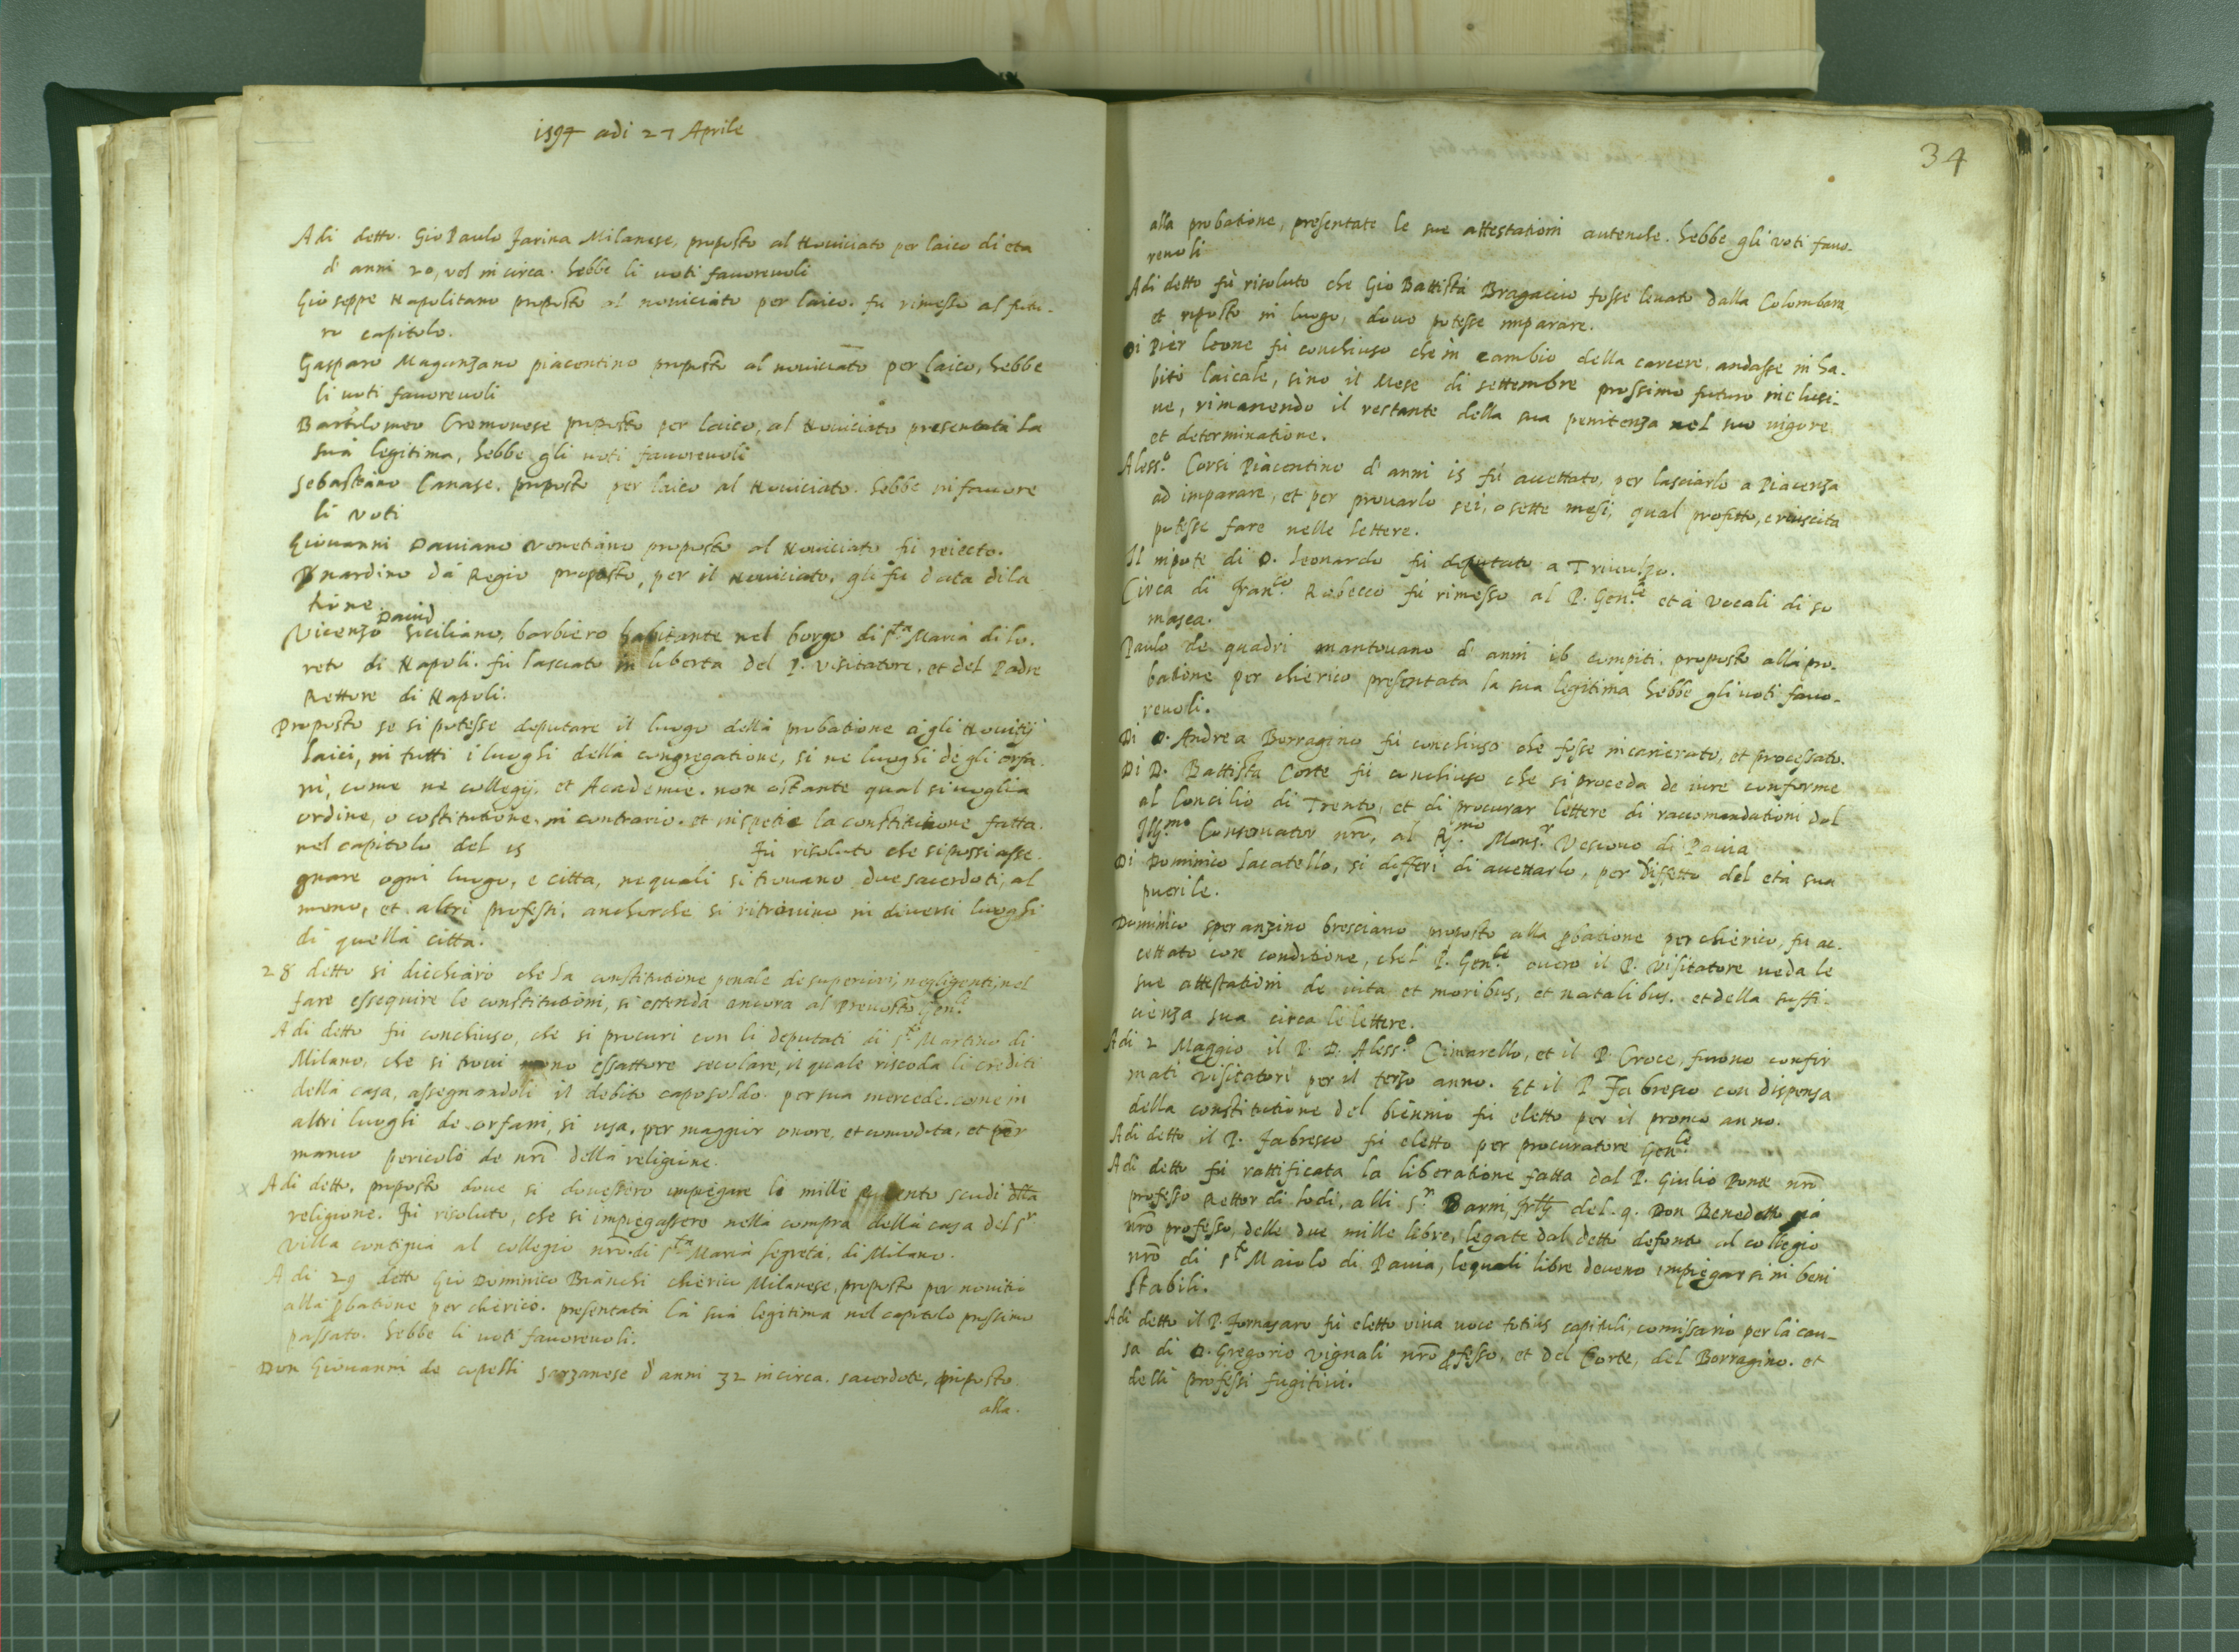 1594 adi 27 Aprile
Adi detto. Gio Paulo Farina Milanese, proposto al Nouiciato per laico di eta
d'anni 20, vel in circa. hebbe li uoti fauoreuoli
Gioseppe Napolitano proposto al nouiciato per laico. fu rimesso al futu-
ro capitolo.
Gasparo Maganzano piacentino proposto al nouiciato per laico, hebbe
li uoti fauoreuoli
Bartolomeo Cremonese proposto per laico, al Nouiciato presentata la
sua legitima, hebbe gli uoti fauoreuoli
Sebastiano Canase. proposto per laico al Nouiciato. hebbe in fauore
li voti
Giouanni Dauiano venetiano proposto al Nouiciato fu reiecto.
Bnardino da Regio proposto, per il Nouiciato, gli fu data dila
tione.
Dauid
Vicenzo siciliano, barbiero habitante nel borgo di s.ta Maria di lo.
reto di Napoli. fu lasciato in liberta del P. visitatore, et del Padre
Rettore di Napoli.
Proposto se si potesse deputare il luogo della probatione a gli Nouitij
laici, in tutti i luoghi della congregatione, si ne luoghi de gli orfa.
ni, come ne collegij. et Academie. non ostante qual si uoglia
ordine, o costitutione. in contrario. et in spetie la constitutione fatta.
nel capitolo del 15 Fu risoluto che si possi asse.
gnare ogni luogo, e citta, ne quali si trouano due sacerdoti, al
meno, et altri professi, anchorche si ritrouino in diuersi luoghi
di quella citta.
28 detto si dicchiarò che la constitutione penale de superiori, negligenti, nel
fare essequire le constitutioni, si estenda ancora al Preuosto Gen.le
Adi detto fu conchiuso, che si procuri con li deputati di s.to Martino di
Milano, che si troui uno essattore seculare, il quale riscoda li crediti
della casa, assegnandoli il debito caposoldo. per sua mercede. come in
altri luoghi de orfani, si usa. per maggior onore, et comodita, et per
manco pericolo de nr̃i della religione.
x Adi detto, proposto doue si douessero impiegare li mille scudi della
religione. Fu risoluto, che si impiegassero nella compra della casa del s.r
Villa contigua al collegio nr̃o. di s.ta Maria segreta, di Milano.
Adi 29 detto Gio Dominico Bianchi chierico Milanese, proposto per nouitio
alla pbatione per chierico. presentata la sua legitima nel capitolo prossimo
passato. hebbe li uoti fauoreuoli.
Don Giouanni de copelli sarzanese d'anni 32 in circa. sacerdote, proposto
alla.
34
alla probatione, presentate le sue attestationi autenche. hebbe gli voti fauo-
reuoli
Adi detto fù risoluto che Gio Battista Bragaccio fosse leuato dalla Colombara
et riposto in luogo, doue potesse imparare.
Di Pier leone fù conchiuso che in cambio della carcere, andasse in ha.
bito laicale, sino il Mese di settembre prossimo futuro inclusi-
ue, rimanendo il restante della sua penitenza nel suo uigore
et determinatione.
Aless.o Corsi Piacentino d'anni 15 fù accettato, per lasciarlo a Piacenza
ad imparare, et per prouarlo sei, o sette mesi, qual profitto, e riuscita
potesse fare nelle lettere.
Il nipote di D. Leonardo fù deputato a Triuulzo.
Circa di Fran.co Robecco fù rimesso al P. Gen.le et a Vocali di so
masca.
Paulo de quadri mantouano d'anni 16 compiti. proposto alla pro.
batione per chierico presentata la sua legitima hebbe gli uoti fauo-
reuoli.
Di D. Andrea Borragino fù conchiuso che fosse incarcerato, et processato.
Di D. Battista Corte fù conchiuso che si proceda de iure conforme
al Concilio di Trento, et di procurar lettere di raccomandationi dal
Ill.mo Conseruator nr̃o, al R.mo Mons.r Vescouo di Pauia
Di Dominico lacatello, si differi di accettarlo, per diffetto del età sua
puerile.
Dominico speranzino bresciano proposto alla pbatione per chierico, fu ac.
cettato con conditione, chel P. Gen.le ouero il P. visitatore ueda le
sue attestationi de uita et moribus, et natalibus. et della suffi.
cienza sua circa le lettere.
Adi 2 Maggio il P. D. Aless.o Cimarello, et il P. Croce, furono confir
mati visitatori per il terzo anno. Et il P. Fabresco con dispensa
della constitutione del biennio fù eletto per il primo anno.
Adi detto il P. Fabresco fù eletto per procuratore Gen.le
Adi detto fù rattificata la liberatione fatta dal P. Giulio Ponte nr̃o
professo Rettor di lodi, alli s.ri Barni, del. q. Don Benedetto già
nr̃o professo, delle due mille libre, legate dal detto defonto al collegio
nr̃o di s.to Maiolo di Pauia, le quali libre deueno impiegarsi in beni
stabili.
Adi detto il P. Fornasaro fù eletto viua uoce totius capituli, comissario per la cau-
sa di D. Gregorio vignali nr̃o pfesso, et del Corte, del Borragino. et
delli professi fugitiui.